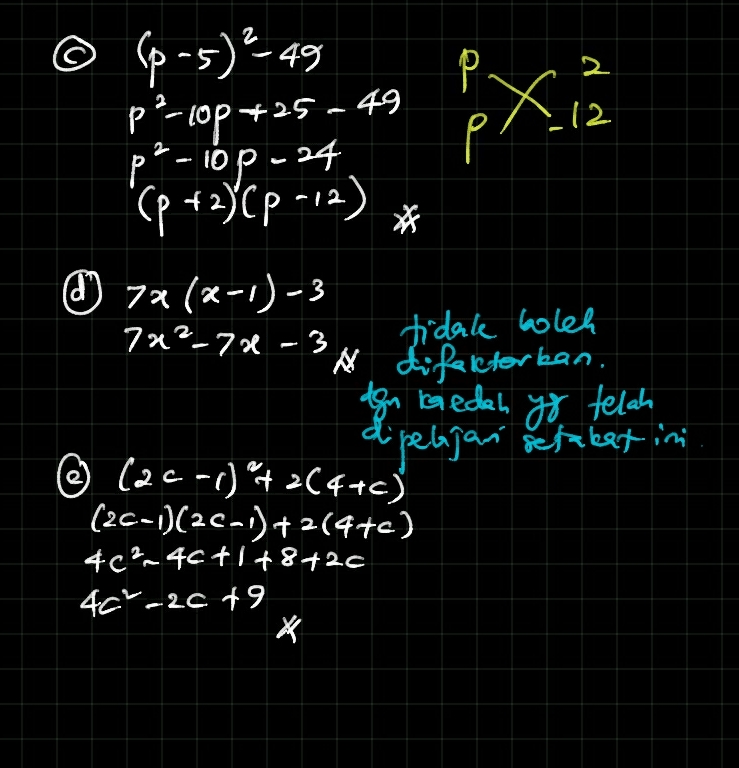 ⓒ (p-5)²-49
p²-10p+25-49
p²-10p-24
(p+2)(p-12)
p 2
p -12
ⓓ 7x(x-1)-3
7x²-7x-3
tidak boleh
difaktorkan.
dgn kaedah yg telah
dipelajari setakat ini.
ⓔ (2c-1)²+2(4+c)
(2c-1)(2c-1)+2(4+c)
4c²-4c+1+8+2c
4c²-2c+9